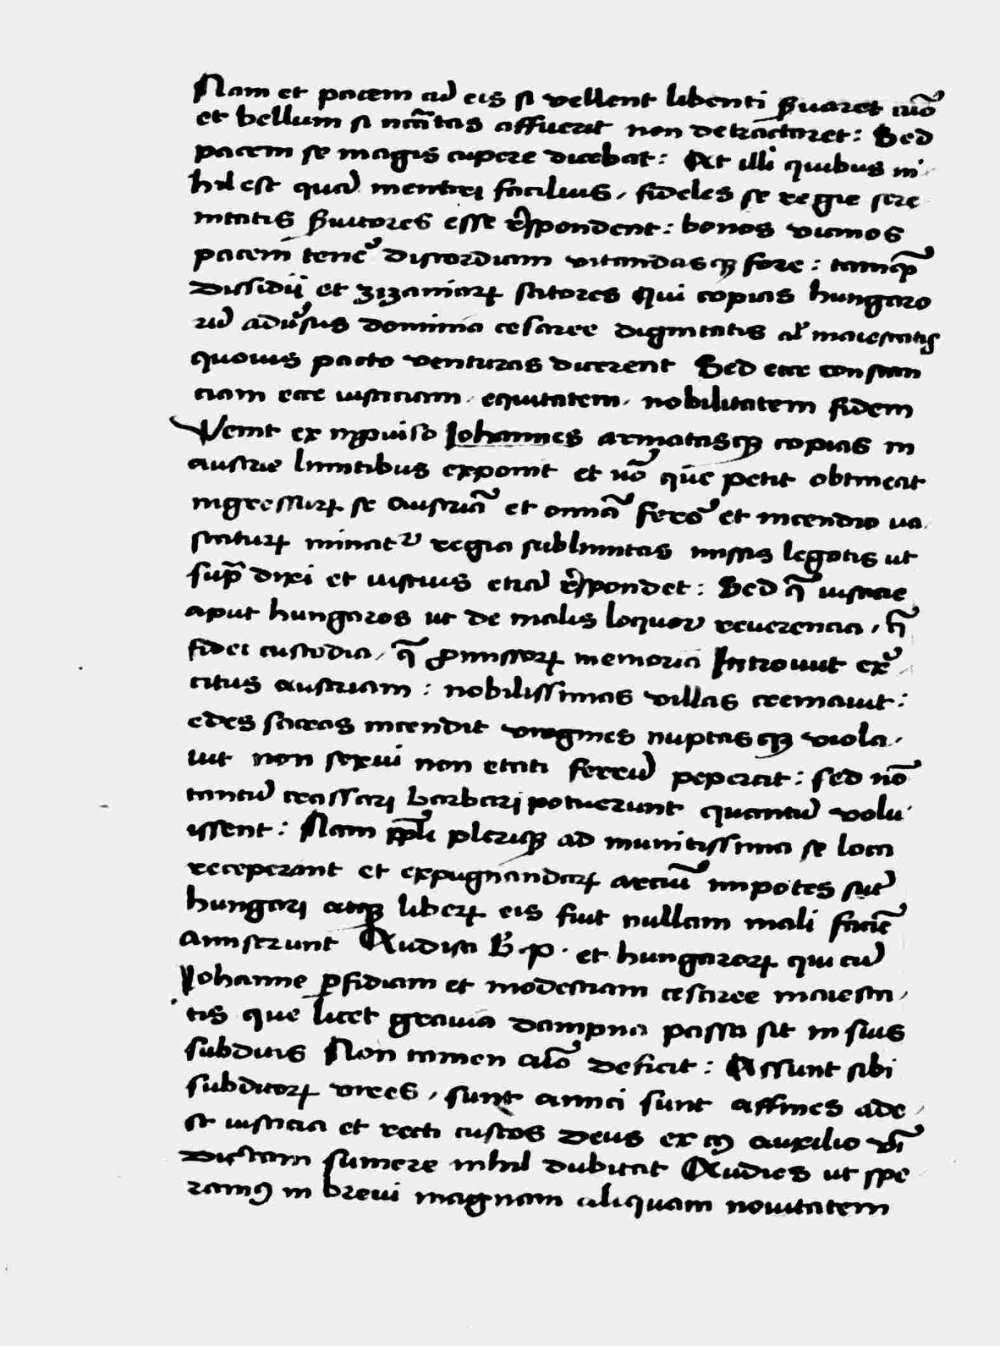 Nam et pacem cū eis si vellent libenti ẜuaret aīo
et bellum si necc̄itas affuerit non detractaret: Sed
pacem se magis cupere dicebat: At illi quibus ni-
hil est quā mentiri facilius, fideles se regie sere
nitatis ẜuitores esse rn̄spondent: bonos vicinos
pacem tenē discordiam vitandasqꝫ fore: tamqȝ
dissidij et zizaniaꝝ satores Qui copias hungaro
rū adūsus dominia cesaree dignitatis al' maiestatis
quouis pacto venturas dicerent Sed ecce constan
ciam ecce iusticiam, equitatem, nobilitatem fidem
Venit ex inꝓuiso Iohannes armatasqꝫ copias in
austrie limitibus exponit et nō qūe petit obtineat
ingressuꝝ se austriā et omīa ferō et incendio ua
statuꝝ minatʳ regia sublimitas missis legatis ut
sup̄ dixi et iustius etiā rn̄spondet: Sed q̄ iusticie
aput hungaros ut de malis loquor reuerencia, q̄
fidei custodia, q̄ ꝓmissoꝝ memoria Introiuit ex̄
citus austriam: nobilissimas villas cremauit:
edes sacras incendit virgines nuptasqꝫ viola-
uit non sexui non etati ferreū pepercit: sed nō
tantū crassari barbari potuerunt quantū volu-
issent: Nam pp̄li pleriqꝫ ad munitissima se loca
receperant et expugnandaꝝ arciū impotes sūt
hungari atqꝫ libeꝝ eis fiut nullam mali faciē
amiserunt Audista B. P. et hungaroꝝ qui cū
Iohanne ꝑfidiam et modestiam cesaree maiesta-
tis que licet grauia dampna passa sit in suis
subditis Non tamen aīo deficit: Assunt sibi
subditoꝝ vires, sunt amici sunt affines ade-
st iusticia et recti custos Deus ex cꝰ auxilio vī
dictam sumere nihil dubitat Audies ut spe
ramꝰ in breui magnam aliquam nouitatem